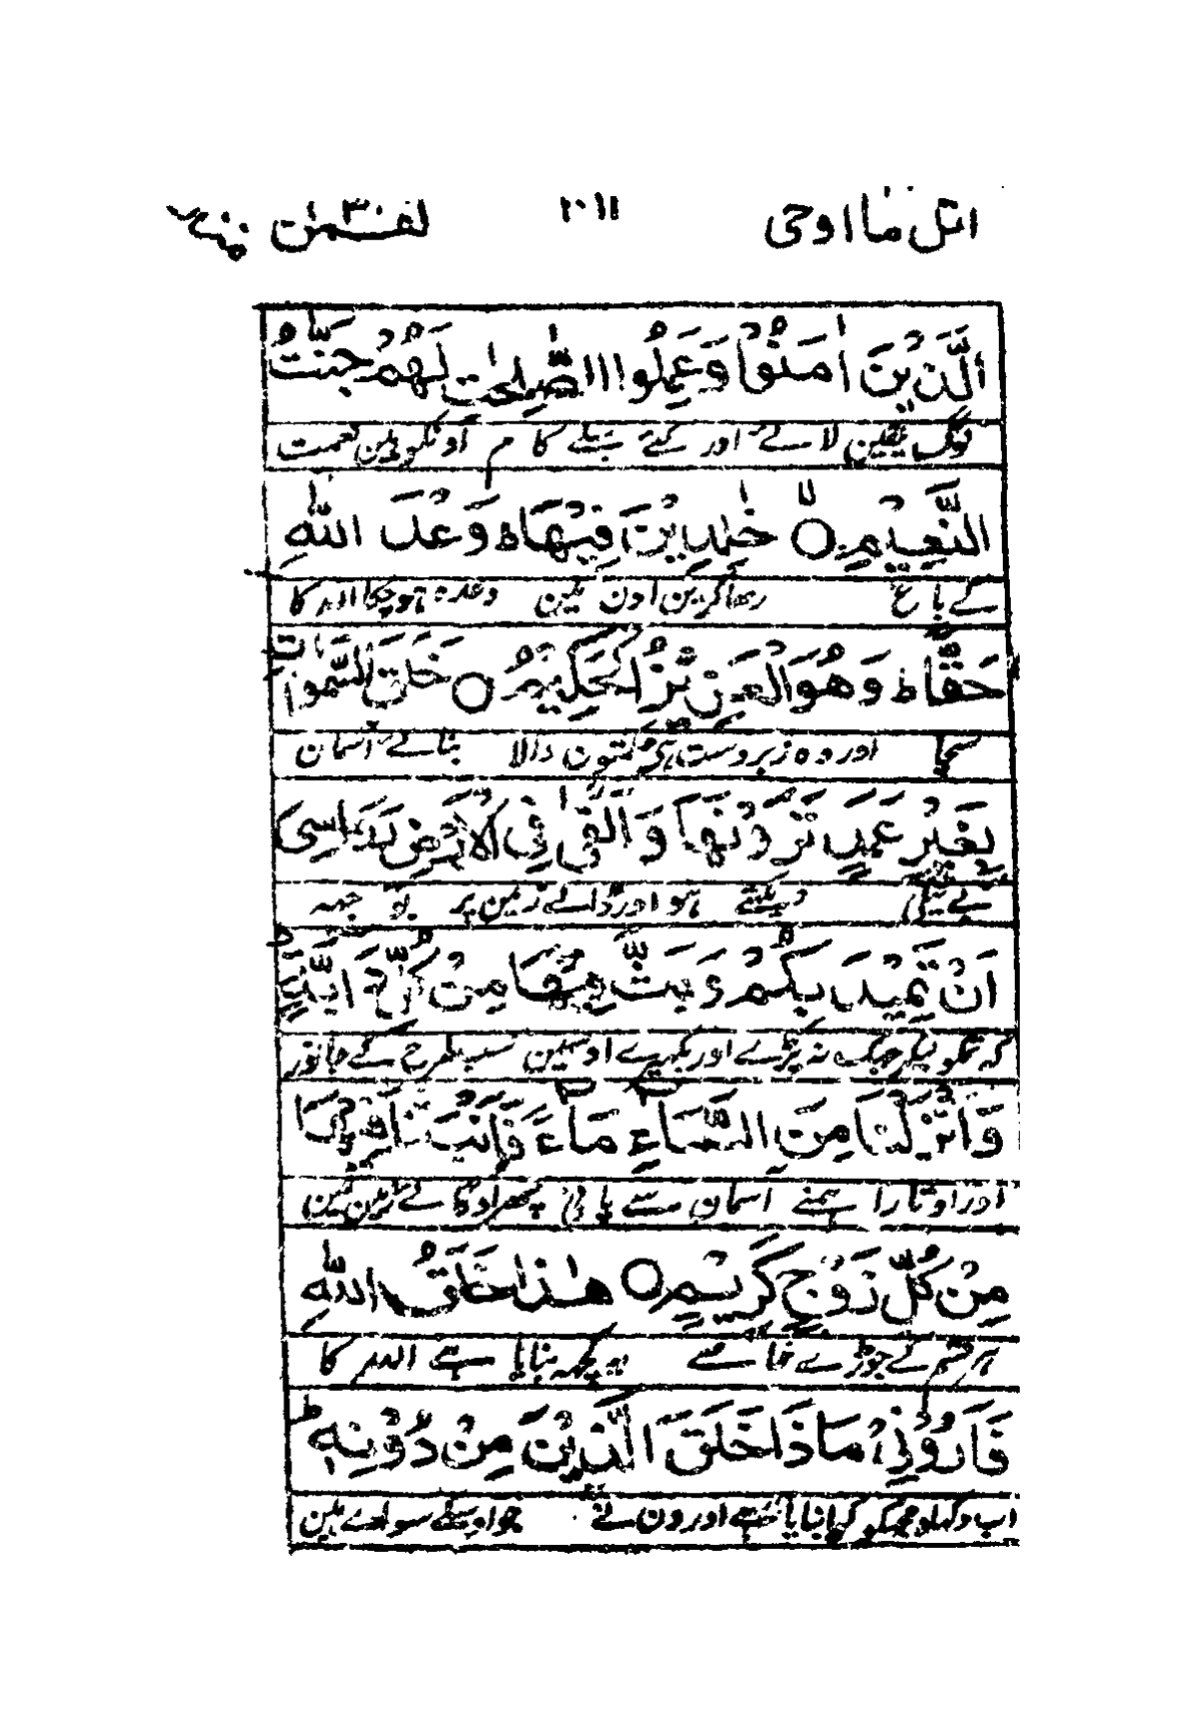 اتل ما اوحی ۲۰۱۱ لقمٰن ۳۱
الَّذِیْنَ اٰمَنُوْا وَعَمِلُوا الصّٰلِحٰتِ لَهُمْ جَنّٰتُ
لوگ یقین لائے اور کئے بھلے کام اونکو ہین نعمت
النَّعِیْمِ ۝ خٰلِدِیْنَ فِیْهَا ط وَعْدَ اللّٰهِ
کے باغ رہا کرین اون مین وعدہ ہو چکا اللہ کا
حَقًّا ط وَهُوَ الْعَزِیْزُ الْحَكِیْمُ ۝ خَلَقَ السَّمٰوٰتِ
سچا اور وہ زبردست ہی حکمتون والا بنائے آسمان
بِغَیْرِ عَمَدٍ تَرَوْنَهَا وَاَلْقٰی فِی الْاَرْضِ رَوَاسِیَ
بے ٹیکے دیکھتے ہو اور ڈالے زمین پر بوجھہ
اَنْ تَمِیْدَ بِكُمْ وَبَثَّ فِیْهَا مِنْ كُلِّ دَآبَّةٍ ط
کہ تمکو لیکر جھک نہ پڑے اور بکھیرے اوسمین سب طرح کے جانور
وَاَنْزَلْنَا مِنَ السَّمَآءِ مَآءً فَاَنْۢبَتْنَا فِیْهَا
اور اوتارا ہمنے آسمان سے پانی پھر اوگائے زمین مین
مِنْ كُلِّ زَوْجٍ كَرِیْمٍ ۝ هٰذَا خَلْقُ اللّٰهِ
ہر قسم کے جوڑے خاصے یہ کچھہ بنایا ہے اللہ کا
فَاَرُوْنِیْ مَاذَا خَلَقَ الَّذِیْنَ مِنْ دُوْنِهٖ ط
اب دکھلاو مجھکو کیا بنایا ہے اورون نے جو اوسکے سوائے ہین